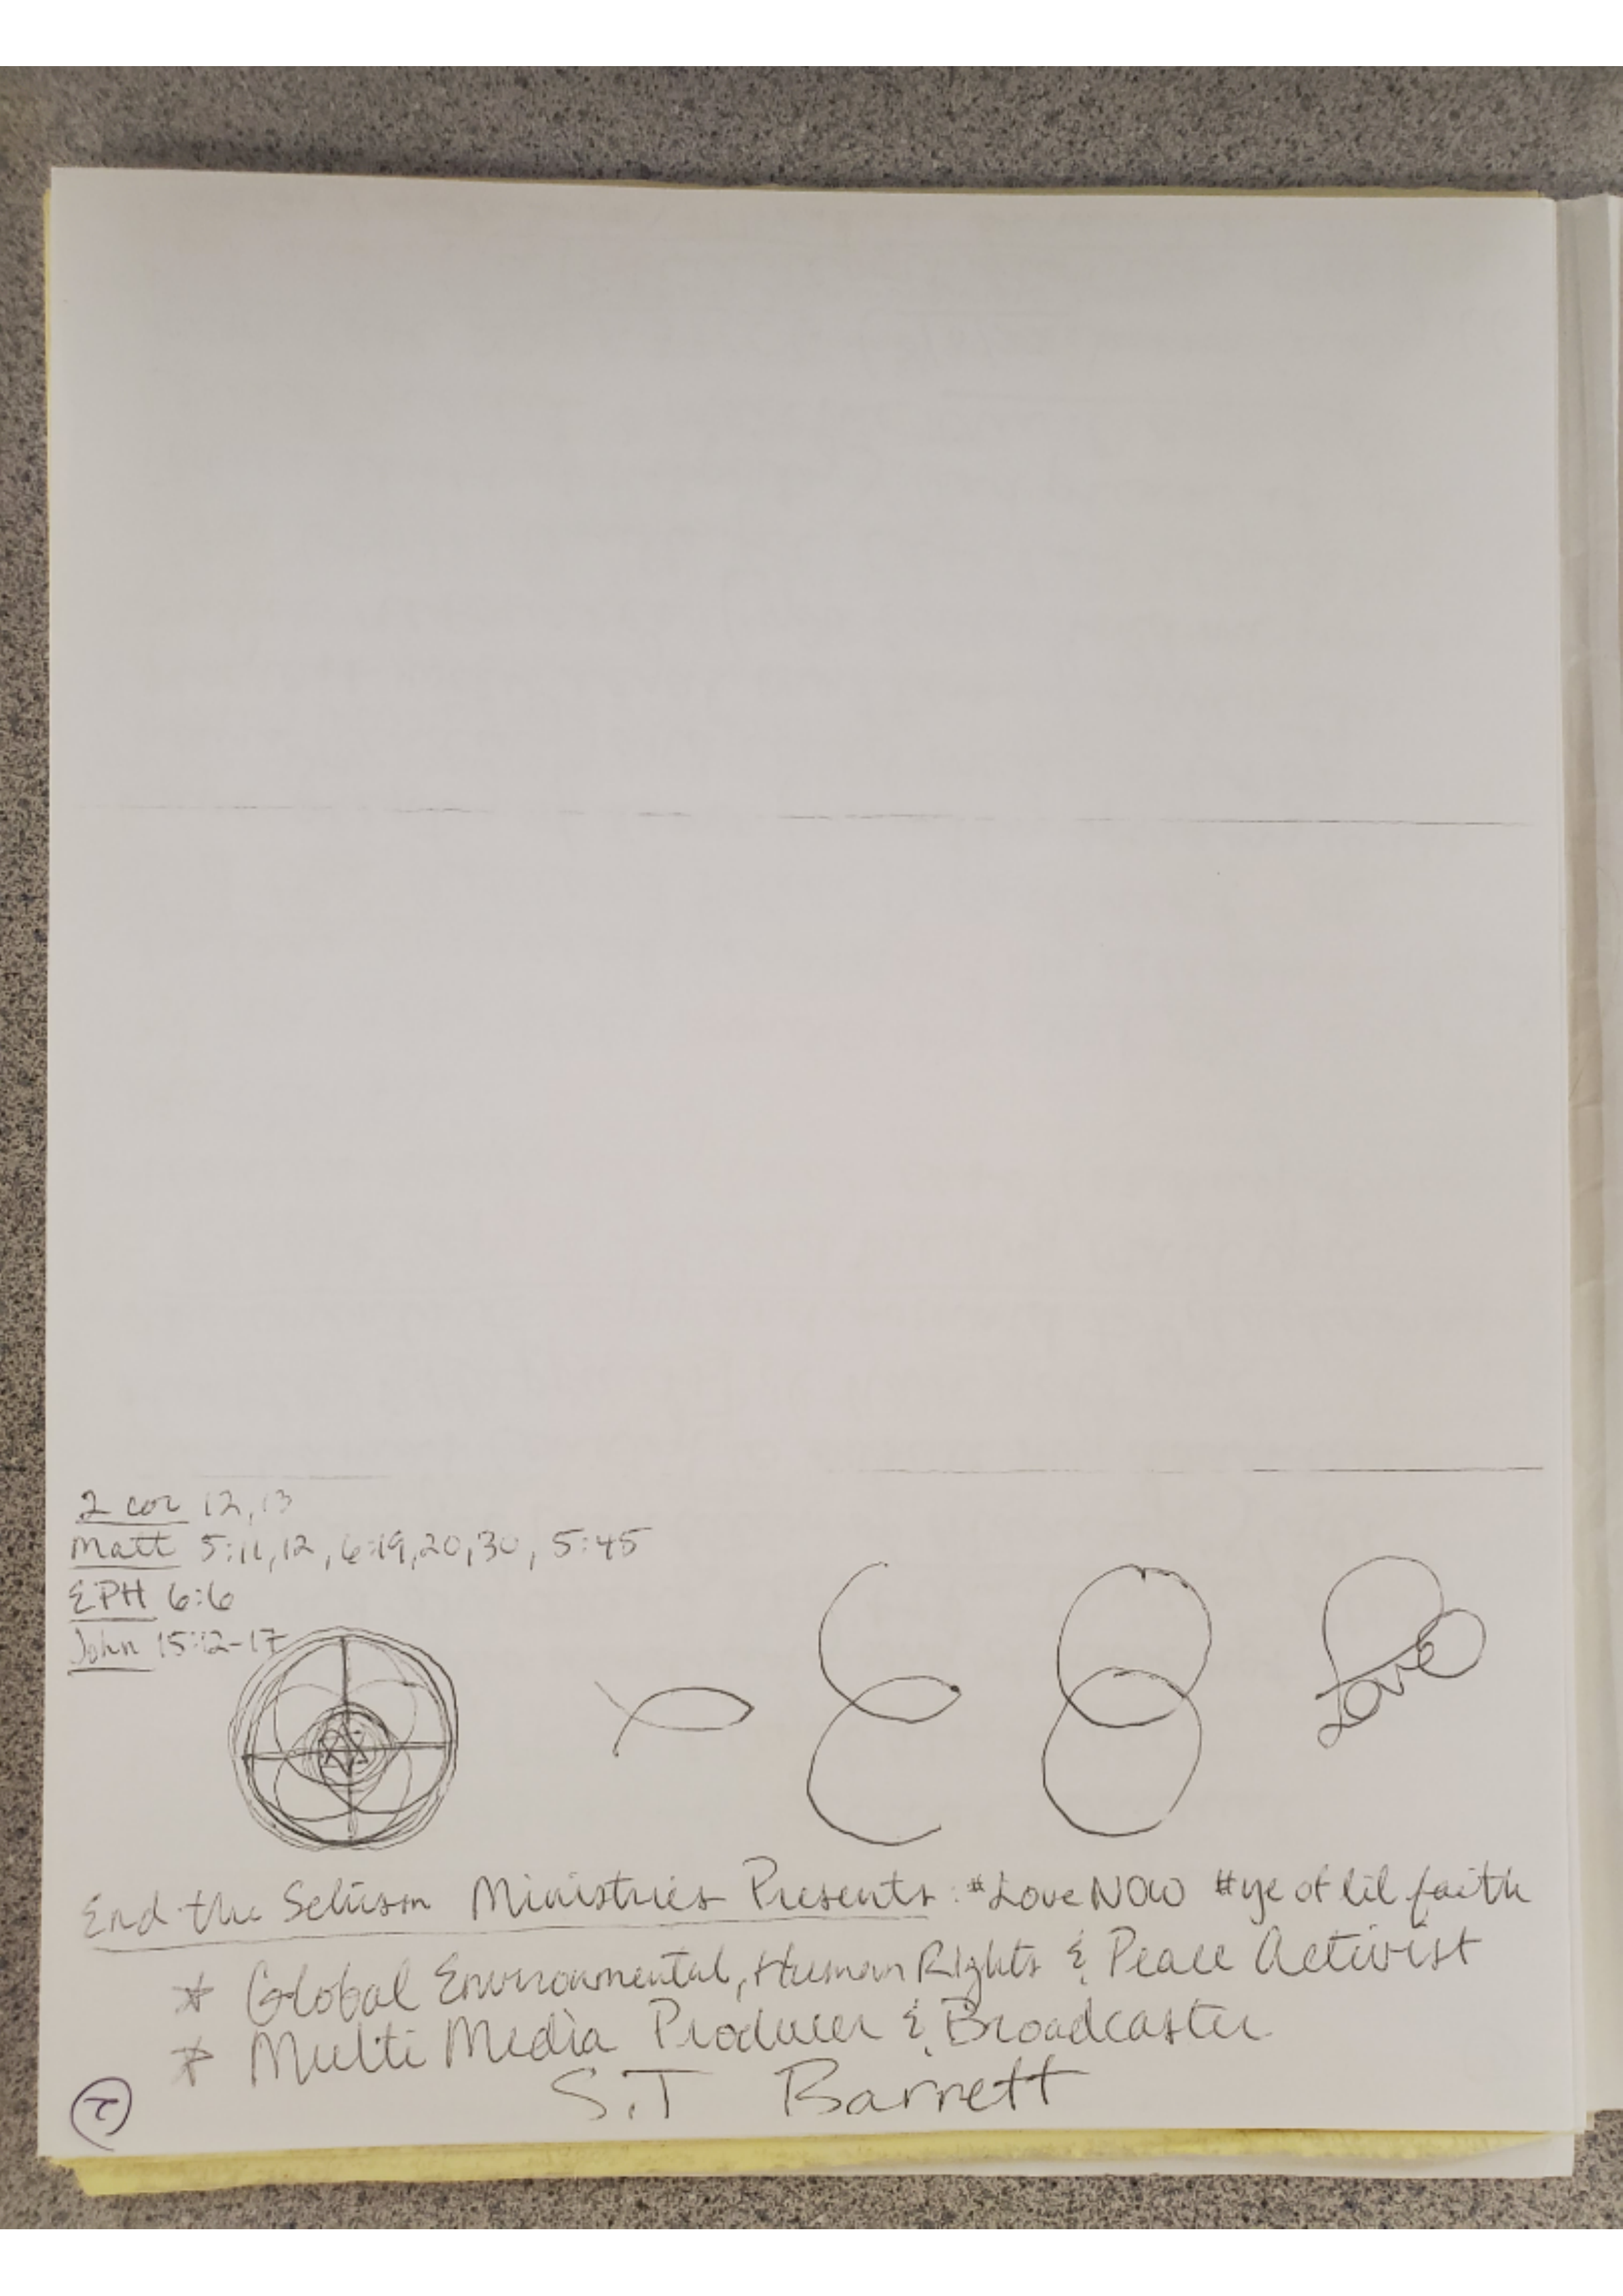 2 cor 12,13
Matt 5:11,12, 6:19,20,30, 5:45
EPH 6:6
John 15:12-17
Love
End the Ministries Presents: #Love NOW #ye of lil faith
* Global Environmental, Human Rights & Peace Activist
* Multi Media Producer & Broadcaster
S.T Barrett